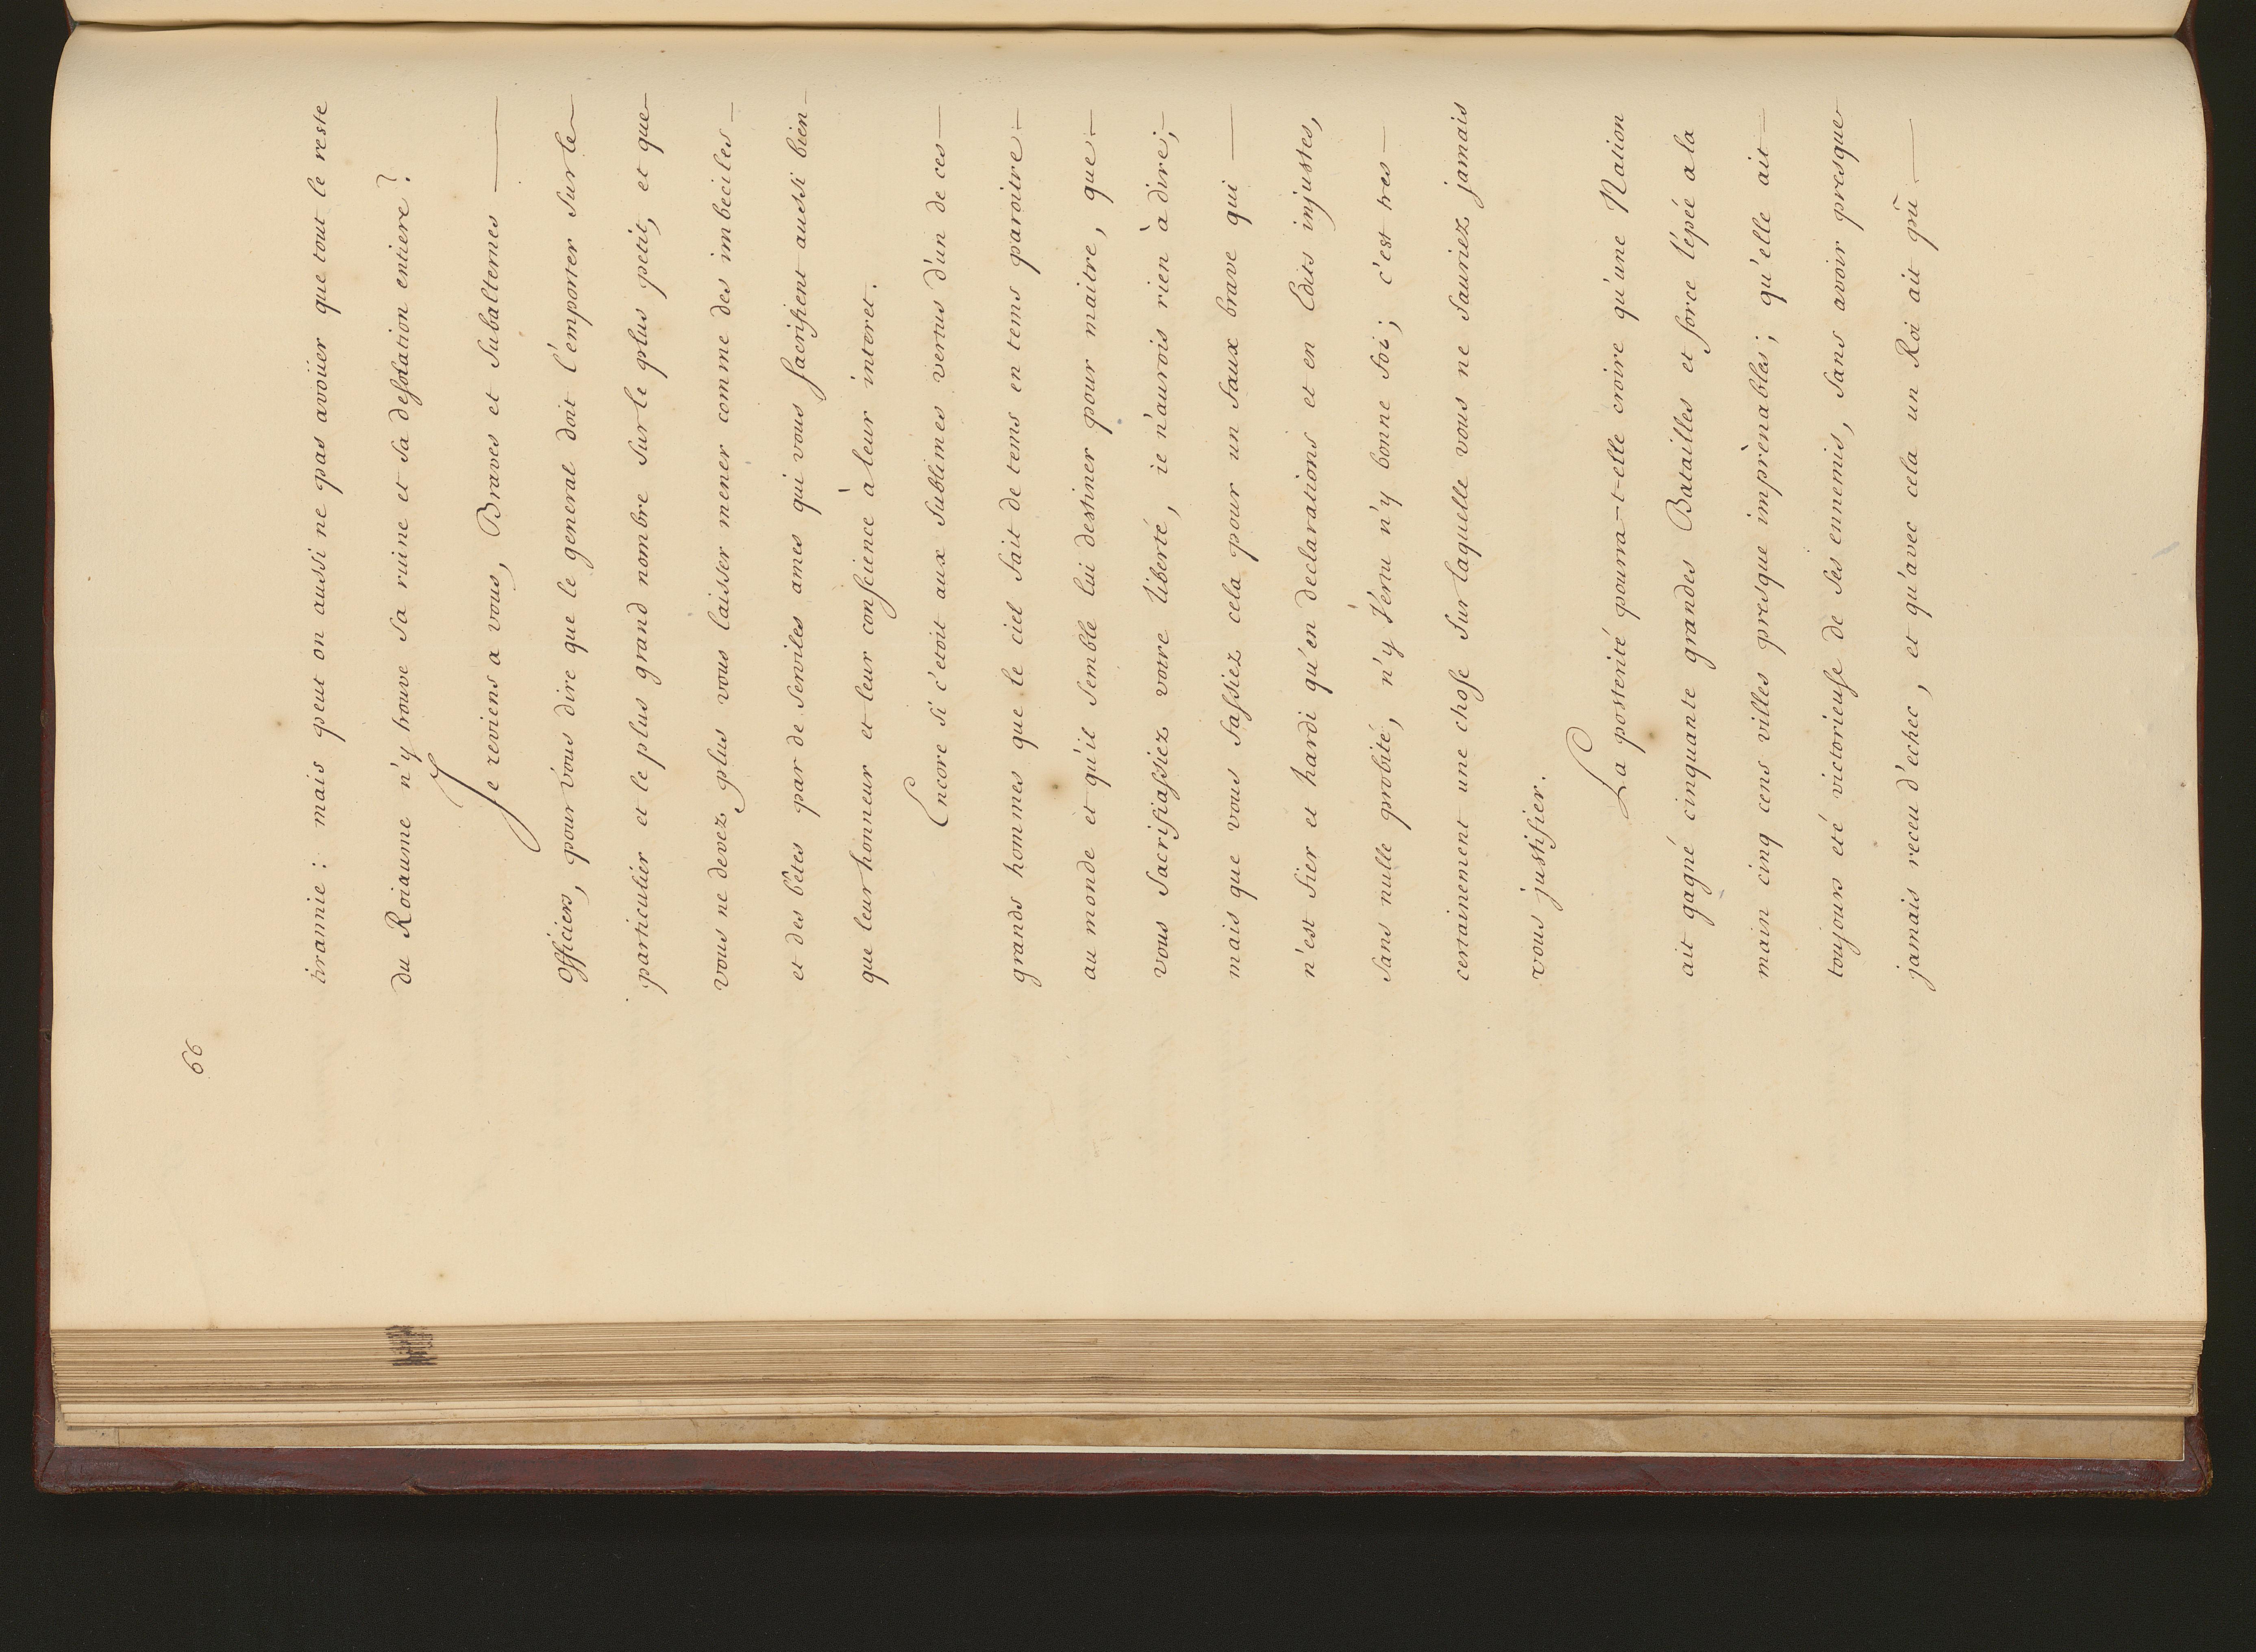 66
tiramie : mais peut on aussi ne pas avoüer que tout le reste
du Roiaume n'y trouve sa ruine et sa desolation entiere ?
Je reviens a vous, Braves et Subalternes
officiers, pour vous dire que le general doit l'emporter sur le
particulier et le plus grand nombre sur le plus petit, et que
vous ne devez plus vous laisser mener comme des imbeciles
et des bêtes par de serviles ames qui vous sacrifient aussi bien
que leur honneur et leur conscience à leur interet.
Encore si c'etoit aux sublimes vertus d'un de ces
grands hommes que le ciel fait de tems en tems paroitre
au monde et qu'il semble lui destiner pour maitre, que
vous sacrifiassiez votre liberté, ie n'aurois rien à dire;
mais que vous fassiez cela pour un faux brave qui
n'est fier et hardi qu'en declarations et en Edits injustes,
sans nulle probité, n'y vertu n'y bonne foi; c'est tres
certainement une chose sur laquelle vous ne sauriez jamais
vous justifier.
La posterité pourra-t-elle croire qu'une Nation
ait gagné cinquante grandes Batailles et force l'épée a la
main cinq cens villes presque imprenables; qu'elle ait
toujours eté victorieuse de ses ennemis, sans avoir presque
jamais receu d'echec, et qu'avec cela un Roi ait pû